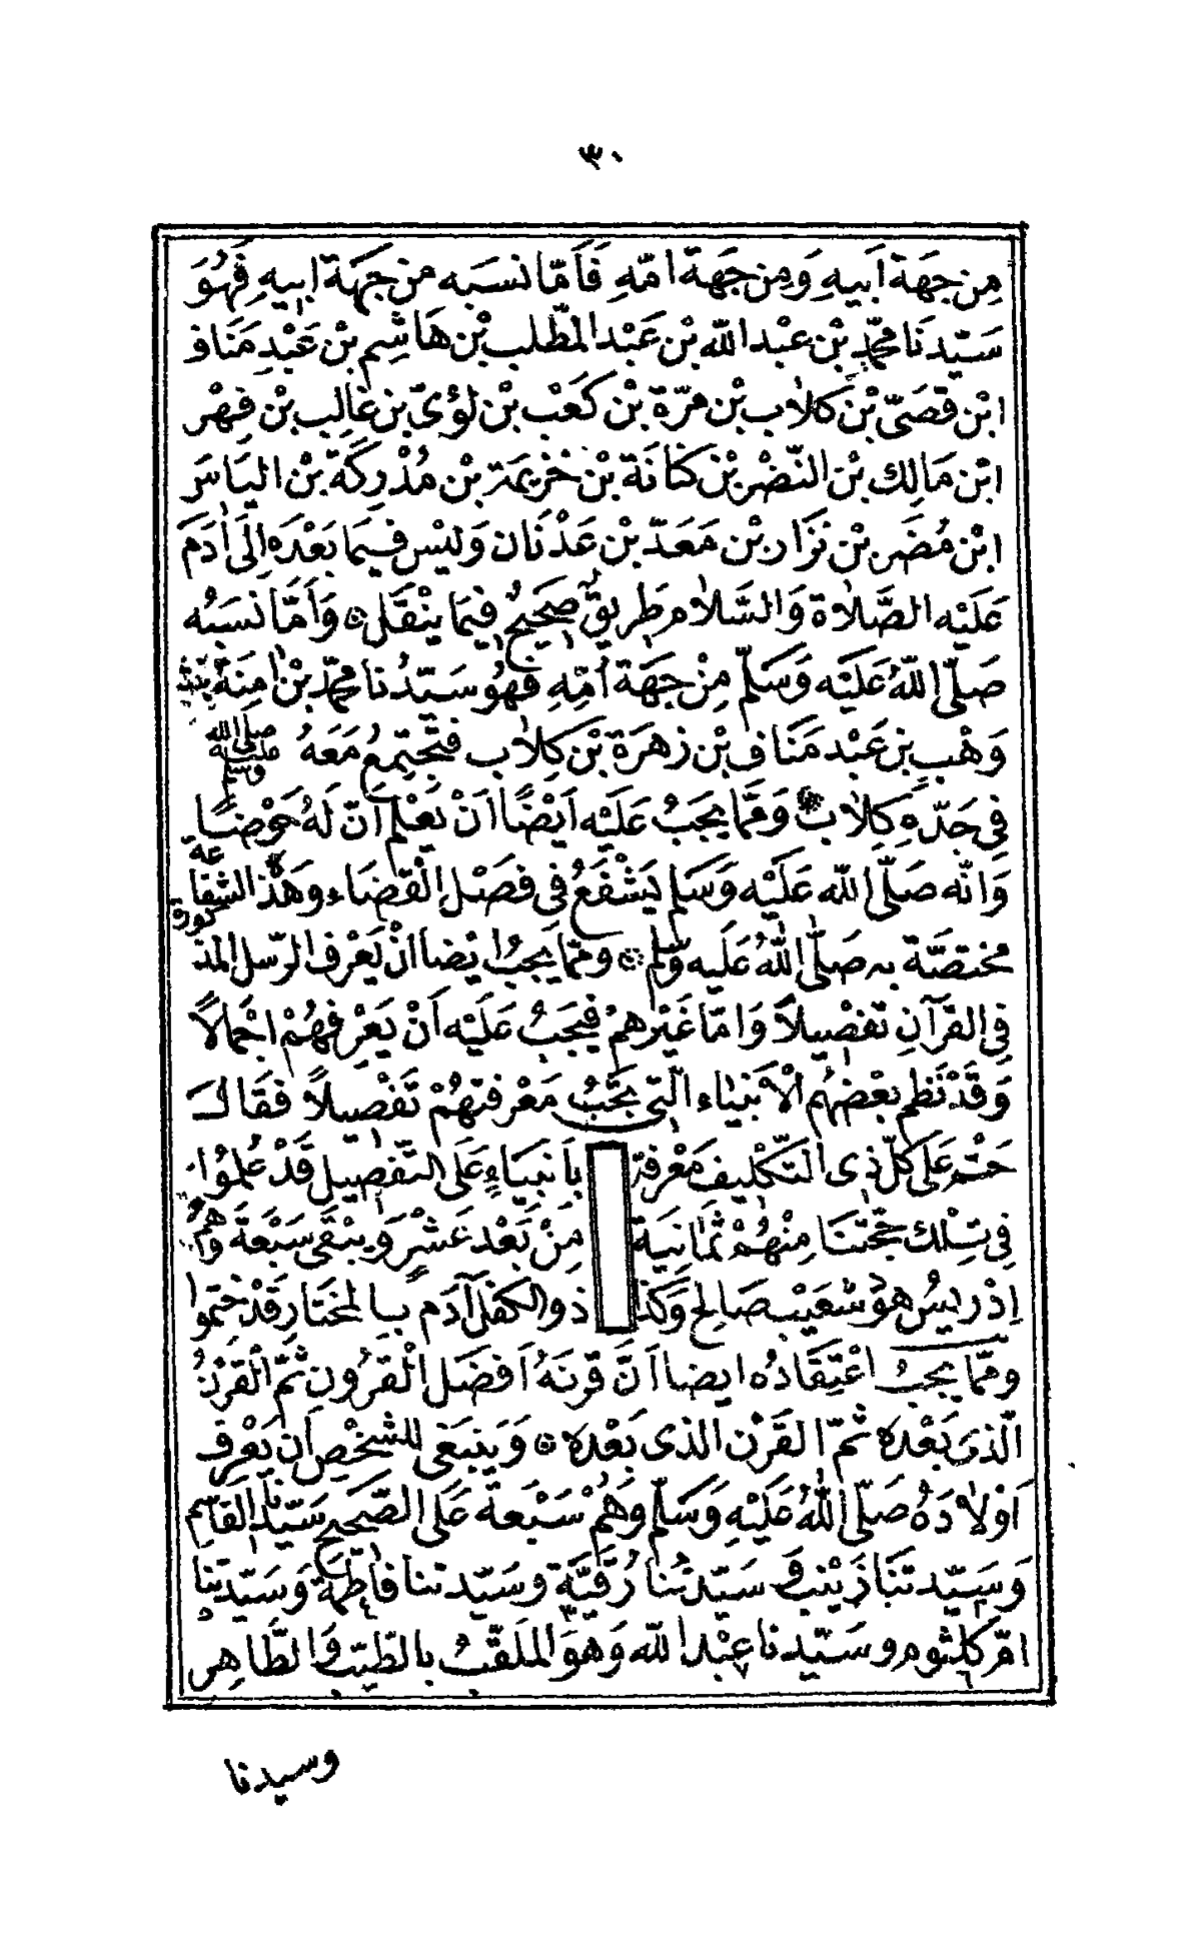 ٣٠
مِن جِهَة اَبيهِ وَمِن جَهة امّهِ فَاَمّا نسَبَه من جِهَة ابيهِ فَهُوَ
سَيّدنَا محمّدِ بْن عبْد اللّه بْن عَبْد المطّلب بْن هَاشِم بْن عَبْدِ مَنَاف
ابْن قصَىّ بْن كلاٰب بْن مرّة بْن كَعْب بْن لؤىّ بن غالِب بْن فِهْر
ابْن مَالِك بْن النّضْر بْن كنَانَة بْن خزيمَة بْن مُدْرِكَة بْن اليَاسَ
ابْن مُضَر بْن نزَار بْن مَعَدّ بْن عَدْنَان وَليْس فيمَا بَعْدَه اِلَى اٰدَمَ
عَلَيْه الصَّلاٰة وَالسَّلاٰم طَرِيقٌ صَحِيحٌ فِيمَا ينْقَل ۞ وَاَمّا نسَبُه
صَلّى اللّهُ عَلَيْه وَسَلّم مِنْ جِهَة اُمّهِ فَهُو سَيّدُنا محمّد بْن اٰمِنَة بنْت
وَهْبِ بن عَبْد مَنَاف بْن زهرَة بْن كِلاٰب فتَجْتَمِعُ مَعَهُ صلى الله عليه وسلم
فِى جَدّهِ كِلاٰب ۞ وَمّما يجبُ عَلَيْه اَيْضًا اَنْ يَعْلم اَنّ لَهُ حَوْضًا
وَانّه صَلّى اللّه عَلَيْه وَسَلم يَشْفَعُ فِى فصَل القضَاء وهَذه الشفاعة
مختصّة به صَلّى اللّهُ عَلَيه وَسّلم ۞ وممّا يجبُ ايْضا انْ يَعْرف الرّسل المذكورة
فِى القرآنِ تفصْيِلاً وَامّا غَيْرهمْ فيجَبُ عَلَيْه اَنْ يَعْرِفهُمْ اجْمالاً
وَقَدْ نَظم بعْضهُم الْاَنبيَاء الّتى تجَبُ مَعْرفتهُمْ تَفْصيلاً فقَالَ
حَتْم عَلى كلّ ذِى التّكْليف مَعْرفة بِاَنبيَاءٍ عَلى التّفصِيل قَدْ عُلمُوا
فِى تِلْك حُجّتنَا مِنْهُمْ ثمَانِيَة مِنْ بَعْد عَشْرٍ وَيبْقَى سَبْعَة وَهُمُ
اِدْريسُ هودُ شعَيْب صَالِح وَكَذا ذو الكفل آدَم بِالمختَار قَدْ ختموا
وممّا يجبُ اعْتِقَادُه ايضا اَنّ قرنَهُ اَفضَل الْقرُونِ ثمّ الْقَرْنُ
الّذى بَعْدَه ثمّ القَرْن الذى بَعْده ۞ وَيَنبَغى للشخْصِ اَن يَعْرف
اَوْلاٰدَهُ صَلّى اللّهُ عَلَيْهِ وَسَلّم وَهُمْ سَبْعَة عَلَى الصّحَيح سَيّدنا القَاسِم
وَسَيّدتنَا زَيْنب وَسَيّدتُنا رُقَيَّة وسَيّدتنا فاطِمَة وَسَيّدتنا
امّ كلثوم وسَيّدنا عبْد اللّه وَهوَ الملَقّبُ بالطّيّب وَالطّاهِر
وسيدنا